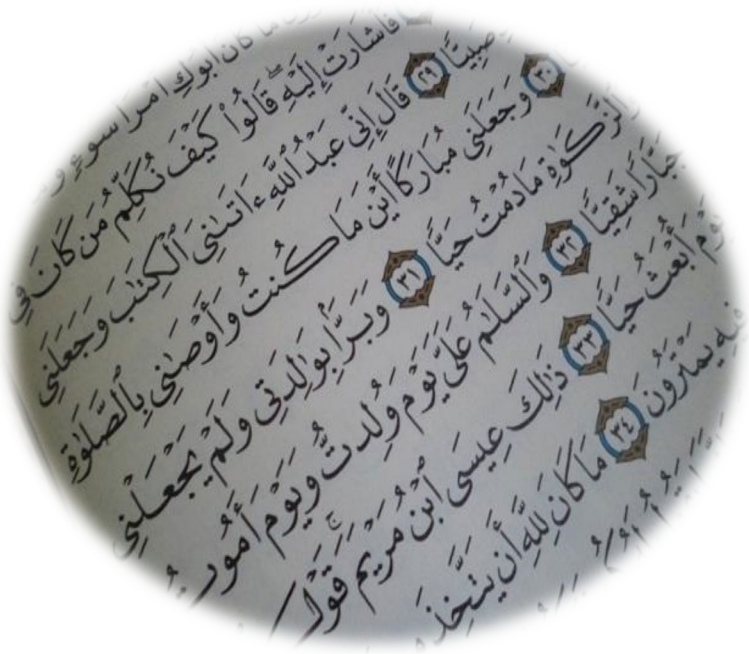 مَا كَانَ أَبُوكِ ٱمْرَأَ سَوْءٍ
فَأَشَارَتْ إِلَيْهِ ۖ قَالُوا۟ كَيْفَ نُكَلِّمُ مَن كَانَ فِي
صَبِيًّا ٢٩ قَالَ إِنِّي عَبْدُ ٱللَّهِ ءَاتَىٰنِيَ ٱلْكِتَٰبَ وَجَعَلَنِي
٣٠ وَجَعَلَنِي مُبَارَكًا أَيْنَ مَا كُنتُ وَأَوْصَٰنِي بِٱلصَّلَوٰةِ
وَٱلزَّكَوٰةِ مَا دُمْتُ حَيًّا ٣١ وَبَرًّۢا بِوَٰلِدَتِي وَلَمْ يَجْعَلْنِي
جَبَّارًا شَقِيًّا ٣٢ وَٱلسَّلَٰمُ عَلَيَّ يَوْمَ وُلِدتُّ وَيَوْمَ أَمُوتُ
أُبْعَثُ حَيًّا ٣٣ ذَٰلِكَ عِيسَى ٱبْنُ مَرْيَمَ ۚ قَوْلَ
فِيهِ يَمْتَرُونَ ٣٤ مَا كَانَ لِلَّهِ أَن يَتَّخِذَ